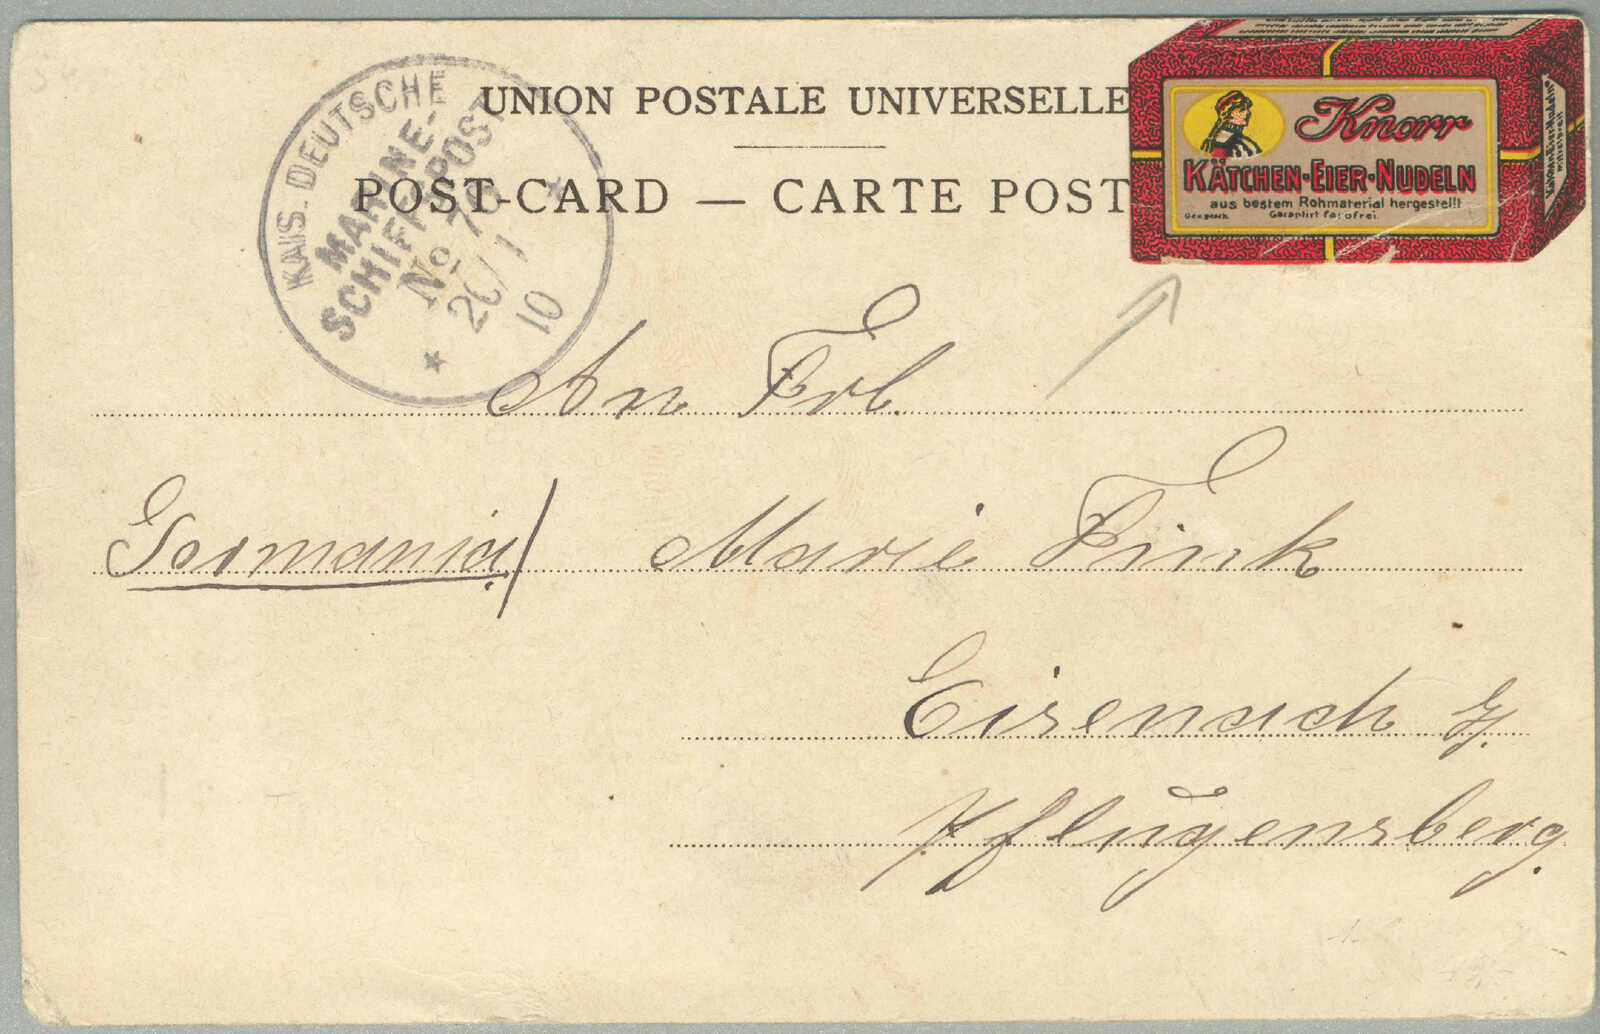 UNION POSTALE UNIVERSELLE
POST-CARD — CARTE POST
KAIS. DEUTSCHE
MARINE-
SCHIFFSPOST
No 76
20/1
10
Knorr
KÄTCHEN-EIER-NUDELN
aus bestem Rohmaterial hergestellt
Garantirt farbfrei.
An Frl.
Germania/ Marie Fink
Eisenach
Pflugensberg.